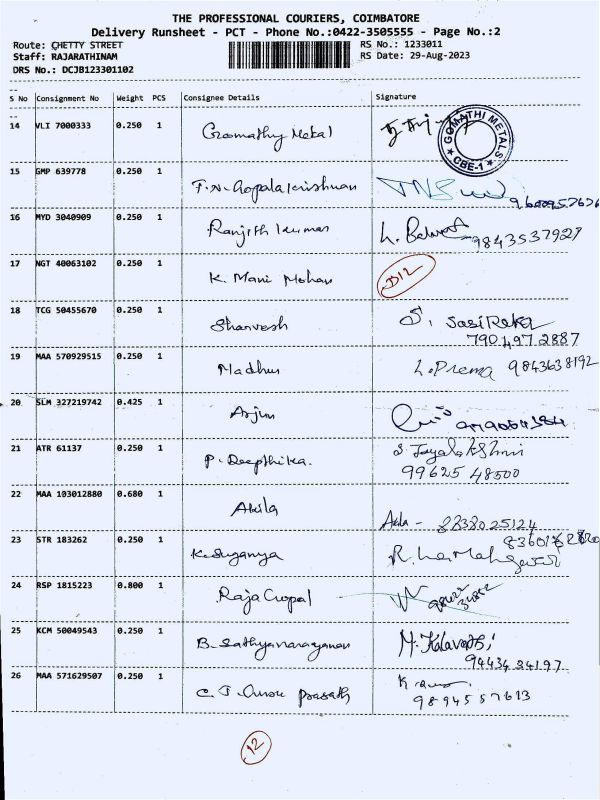 THE PROFESSIONAL COURIERS, COIMBATORE
Delivery Runsheet - PCT - Phone No.:0422-3505555 - Page No.:2
Route: CHETTY STREET RS No.: 1233011
Staff: RAJARATHINAM RS Date: 29-Aug-2023
DRS No.: DCJB123301102
S No Consignment No Weight PCS Consignee Details Signature
14 VLI 7000333 0.250 1 Gomathy Metal GOMATHI METALS CBE-1
15 GMP 639778 0.250 1 T.N. Gopalakrishnan TNS
16 MYD 3040909 0.250 1 Ranjith kumar 9843537927
17 NGT 40063102 0.250 1 K. Mani Mohan D12
18 TCG 50455670 0.250 1 Sharvesh S. SasiReka
790 497 2887
19 MAA 570929515 0.250 1 Madhu L.Prema 9843638192
20 SLM 327219742 0.425 1 Arjun
21 ATR 61137 0.250 1 P. Deepthika. S Jayalakshmi
99625 48500
22 MAA 103012880 0.680 1 Akila Akila - 8838025124
23 STR 183262 0.250 1 K.Suganya
24 RSP 1815223 0.800 1 Raja Gopal
25 KCM 50049543 0.250 1 B. Sathyanarayanan M. Kalavathi
94434 34197
26 MAA 571629507 0.250 1 C. J. Prasath
9894557613
12